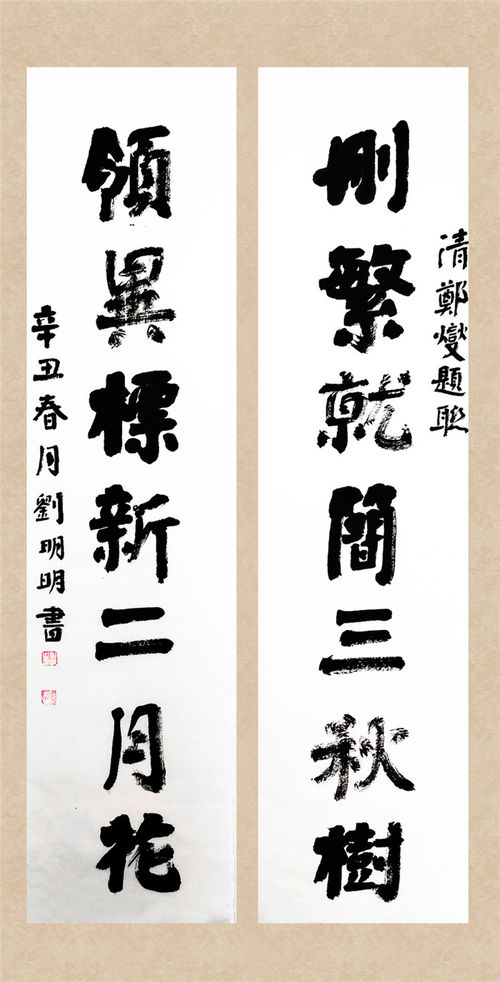 清鄭燮題聯
刪繁就簡三秋樹
領異標新二月花
辛丑春月劉明明書